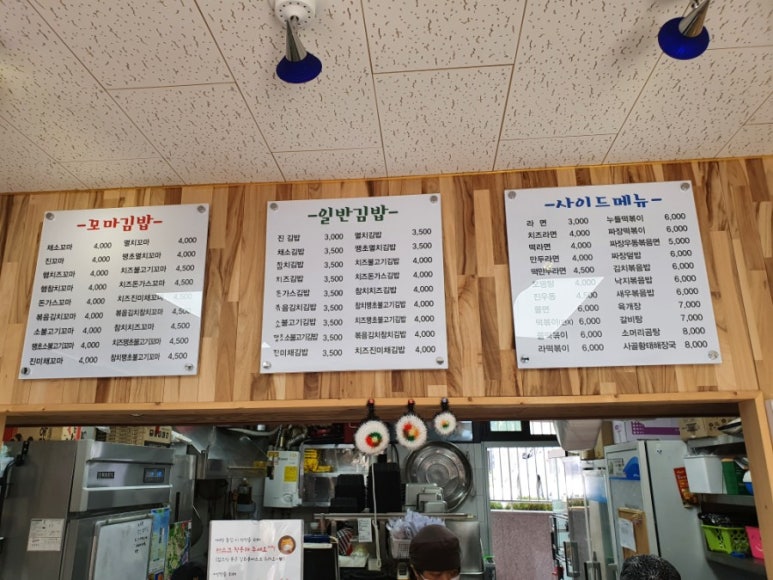 -꼬마김밥-
채소꼬마 4,000 멸치꼬마 4,000
진꼬마 4,000 땡초멸치꼬마 4,000
햄치즈꼬마 4,000 치즈불고기꼬마 4,500
햄참치꼬마 4,000 치즈돈가스꼬마 4,500
돈가스꼬마 4,000 치즈진미채꼬마 4,500
볶음김치꼬마 4,000 볶음김치참치꼬마 4,500
소불고기꼬마 4,000 참치치즈꼬마 4,500
땡초소불고기꼬마 4,000 치즈땡초불고기꼬마 4,500
진미채꼬마 4,000 참치땡초불고기꼬마 4,500
-일반김밥-
진 김밥 3,000 멸치김밥 3,500
채소김밥 3,500 땡초멸치김밥 3,500
참치김밥 3,500 치즈불고기김밥 4,000
치즈김밥 3,500 치즈돈가스김밥 4,000
돈가스김밥 3,500 참치치즈김밥 4,000
볶음김치김밥 3,500 치즈땡초불고기김밥 4,000
소불고기김밥 3,500 참치땡초불고기김밥 4,000
땡초소불고기김밥 3,500 볶음김치참치김밥 4,000
진미채김밥 3,500 치즈진미채김밥 4,000
-사이드메뉴-
라 면 3,000 누들떡볶이 6,000
치즈라면 4,000 짜장떡볶이 6,000
떡라면 4,000 짜장우동볶음면 5,000
만두라면 4,000 짜장덮밥 6,000
떡만두라면 4,500 김치볶음밥 6,000
4,000 낙지볶음밥 6,000
진우동 새우볶음밥 6,000
쫄면 육개장 7,000
떡볶이 갈비탕 7,000
6,000 소머리곰탕 8,000
라떡볶이 6,000 사골황태해장국 8,000
마스크 착용해 주세요